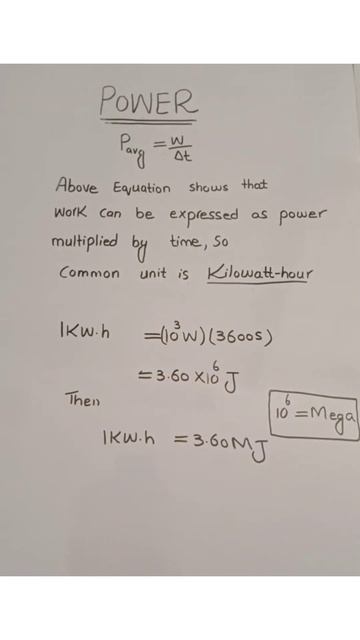 POWER
Pavg = W/Δt
Above Equation shows that
work can be expressed as power
multiplied by time, So
Common unit is Kilowatt-hour
1KW.h = (10³W)(3600S)
= 3.60 X 10⁶ J
Then
10⁶ = Mega
1KW.h = 3.60MJ